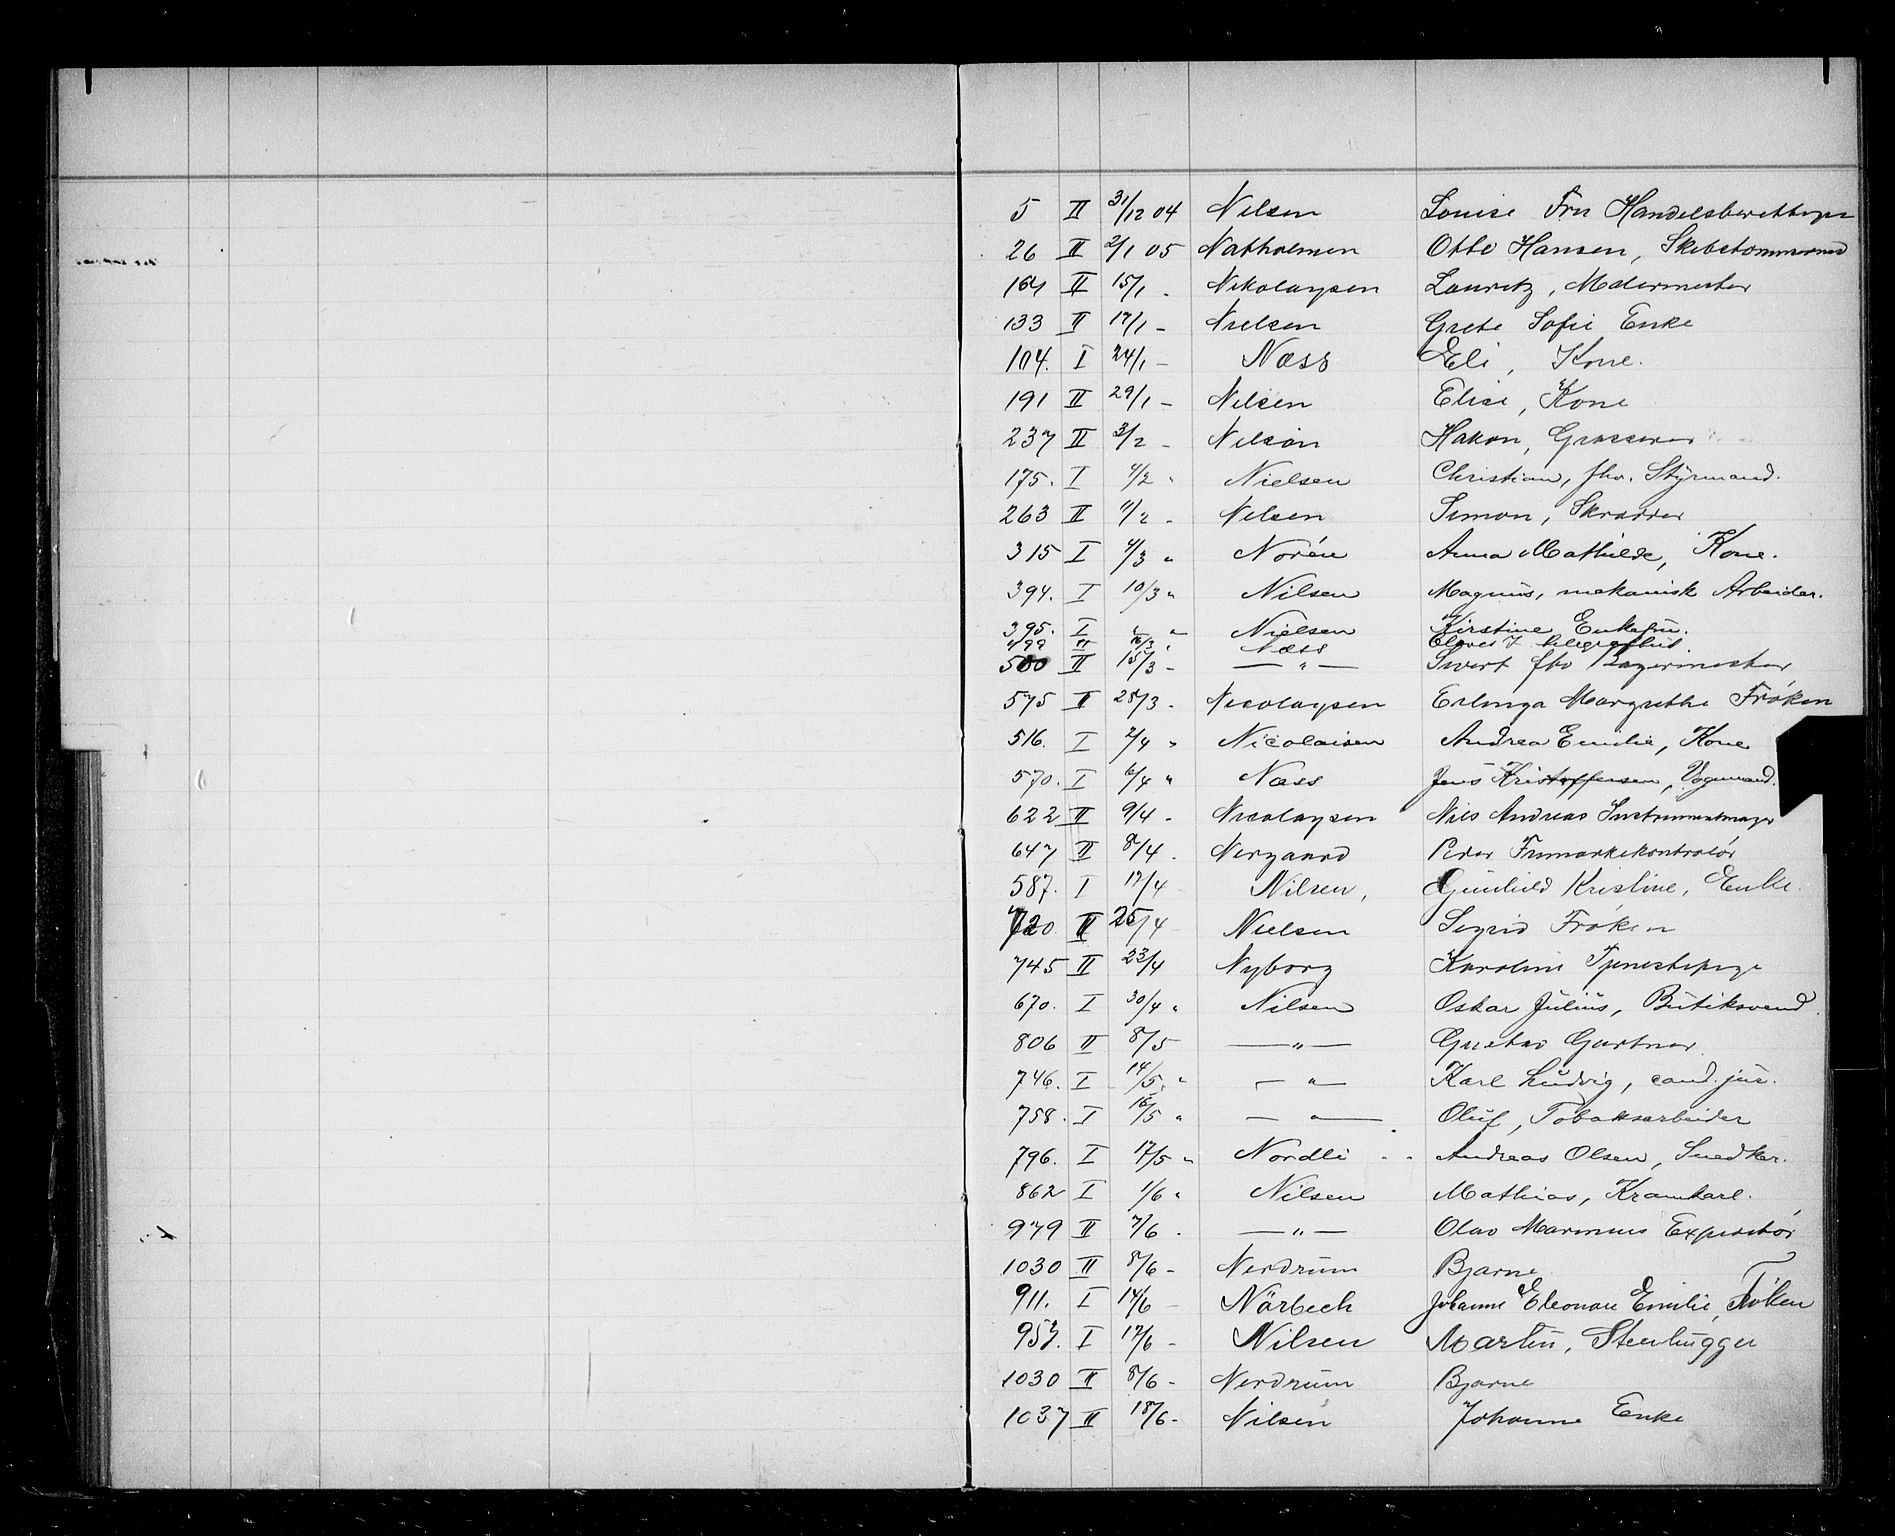 5 II 31/12 04 Nilsen Louise Fru Handelsberettiget
26 II 2/1 05 Natholmen Otto Hansen, Skibstømmermd
164 II 15/1 - Nikolaysen Lauritz, Malermester
133 II 17/1 - Nielsen Grete Sofie Enke
104. I 24/1 - Næss Eli, Kone.
191 II 29/1 - Nilsen Elise, Kone
237 II 3/2 - Nilson Hakon, Grosserer
175. I 4/2 " Nielsen Christian, fhv. Styrmand.
263 II 11/2 - Nilsen Simon, Skrædder
315 I 4/3 " Norén Anna Mathilde, Kone.
394. I 10/3 " Nilsen Magnus, mekanisk Arbeider.
395. I " " Nielsen Kirstine, Enkefru.
499 II Næss telegrafist.
500 II 15/3 - — " — Sivert fhv Bagermester
575 II 28/3 - Nicolaysen Erlinga Margrethe Frøken
516. I 2/4 " Nicolaisen Andrea Emilie, Kone
570. I 6/4 " Næss Jens Kristoffersen, Vognmand.
622 II 9/4 - Nicolaysen Nils Andreas Instrumentmager
647 II 8/4 - Nergaard Peder Frimærkekontrolør
587. I 17/4 - Nilsen, Gunhild Kristine, Enke.
720 II 25/4 - Nielsen Sigrid Frøken
745 II 23/4 Nyborg Karoline Tjenestepige
670. I 30/4 " Nilsen Oskar Julius, Butiksvend.
806 II 8/5 — " — Gustav Gartner
746. I 14/5 " — " — Karl Ludvig, cand. jur.
758. I 16/5 " — " — Oluf, Tobaksarbeider
796. I 17/5 " Nordli Andreas Olsen, Snedker.
862 I 1/6 " Nilsen Mathias, Kramkarl.
979 II 7/6 - — " — Olav Marinius Expeditør
1030 II 8/6 - Nerdrum Bjarne
911. I 14/6 - Nørbech Johanne Eleonore Emilie, Frøken
957. I 17/6 - Nilsen Martin, Stenhugger
1030 II 8/6 - Nerdrum Bjarne
1037 II 18/6 - Nilsen Johanne Enke